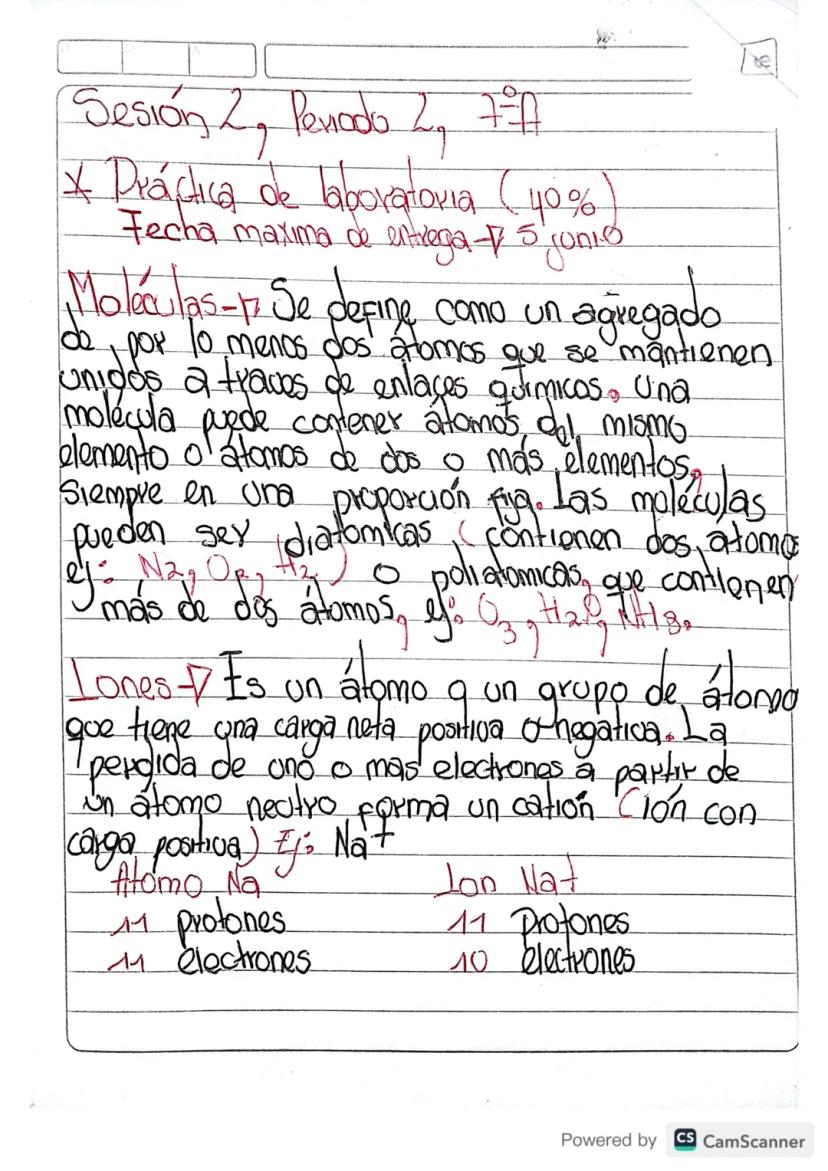 Sesión 2, Periodo 2, 7ºA
* Práctica de laboratoria (40%)
Fecha maxima de entrega → 5 junio
Moléculas → Se define como un agregado
de, por lo menos dos átomos que se mantienen
unidos a traves de enlaces químicos. Una
molécula puede contener átomos del mismo
elemento o átomos de dos o más elementos,
siempre en una proporción fija. Las moléculas
pueden ser diatomicas (contienen dos átomos
ej: N2, O2, H2) o poliatomicas, que contienen
más de dos átomos, ej: O3, H2O, NH3.
Iones → Es un átomo o un grupo de átomo
que tiene una carga neta positiva o negativa. La
perdida de uno o mas electrones a partir de
un átomo neutro forma un catión (ión con
carga positiva) Ej: Na+
Atomo Na Ion Na+
11 protones 11 Protones
11 electrones 10 electrones
Powered by CS CamScanner